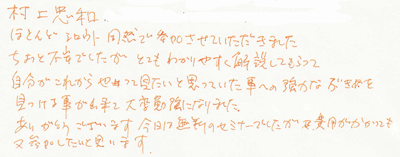 村上忠和
ほとんどシロウト同然で参加させていただきました
ちょっと不安でしたが とてもわかりやすく解説してもらって
自分がこれからやって見たいと思っていた事への強力なぶきを
見つける事が出来て大変勉強になりました。
ありがとうございます 今日は無料のセミナーでしたが 費用がかかっても
又参加したいと思います。